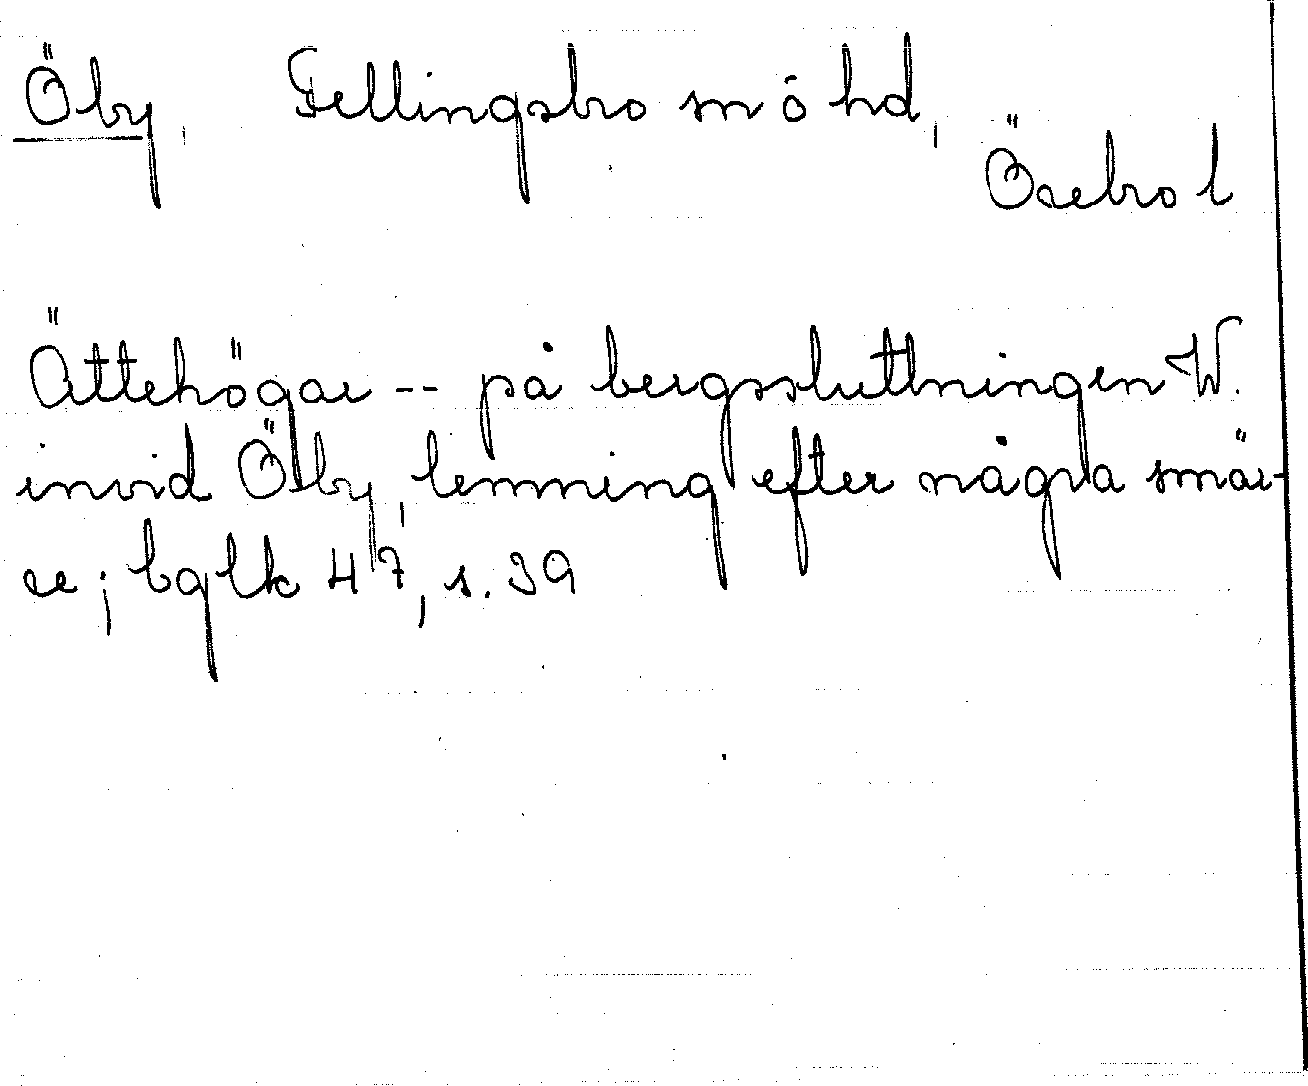 Öby, Fellingsbro sn ö hd,
Örebro l
Ättehögar -- på bergssluttningen W.
invid Öby, lemning efter några smär-
re; bglk 47, s. 39